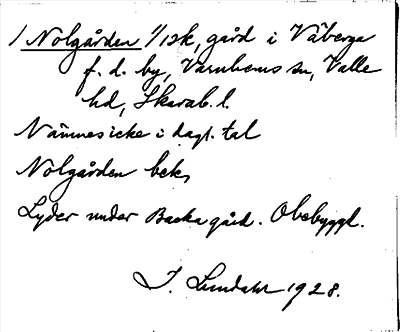 / Nolgården 1/12k, gård i Våberga
f. d. by, Varnhems sn, Valle
hd, Skarab. l.
Nämnes icke i dagl. tal
Nolgården bek,
Lyder under Backa gård. Obebyggt.
I. Lundahl 1928.